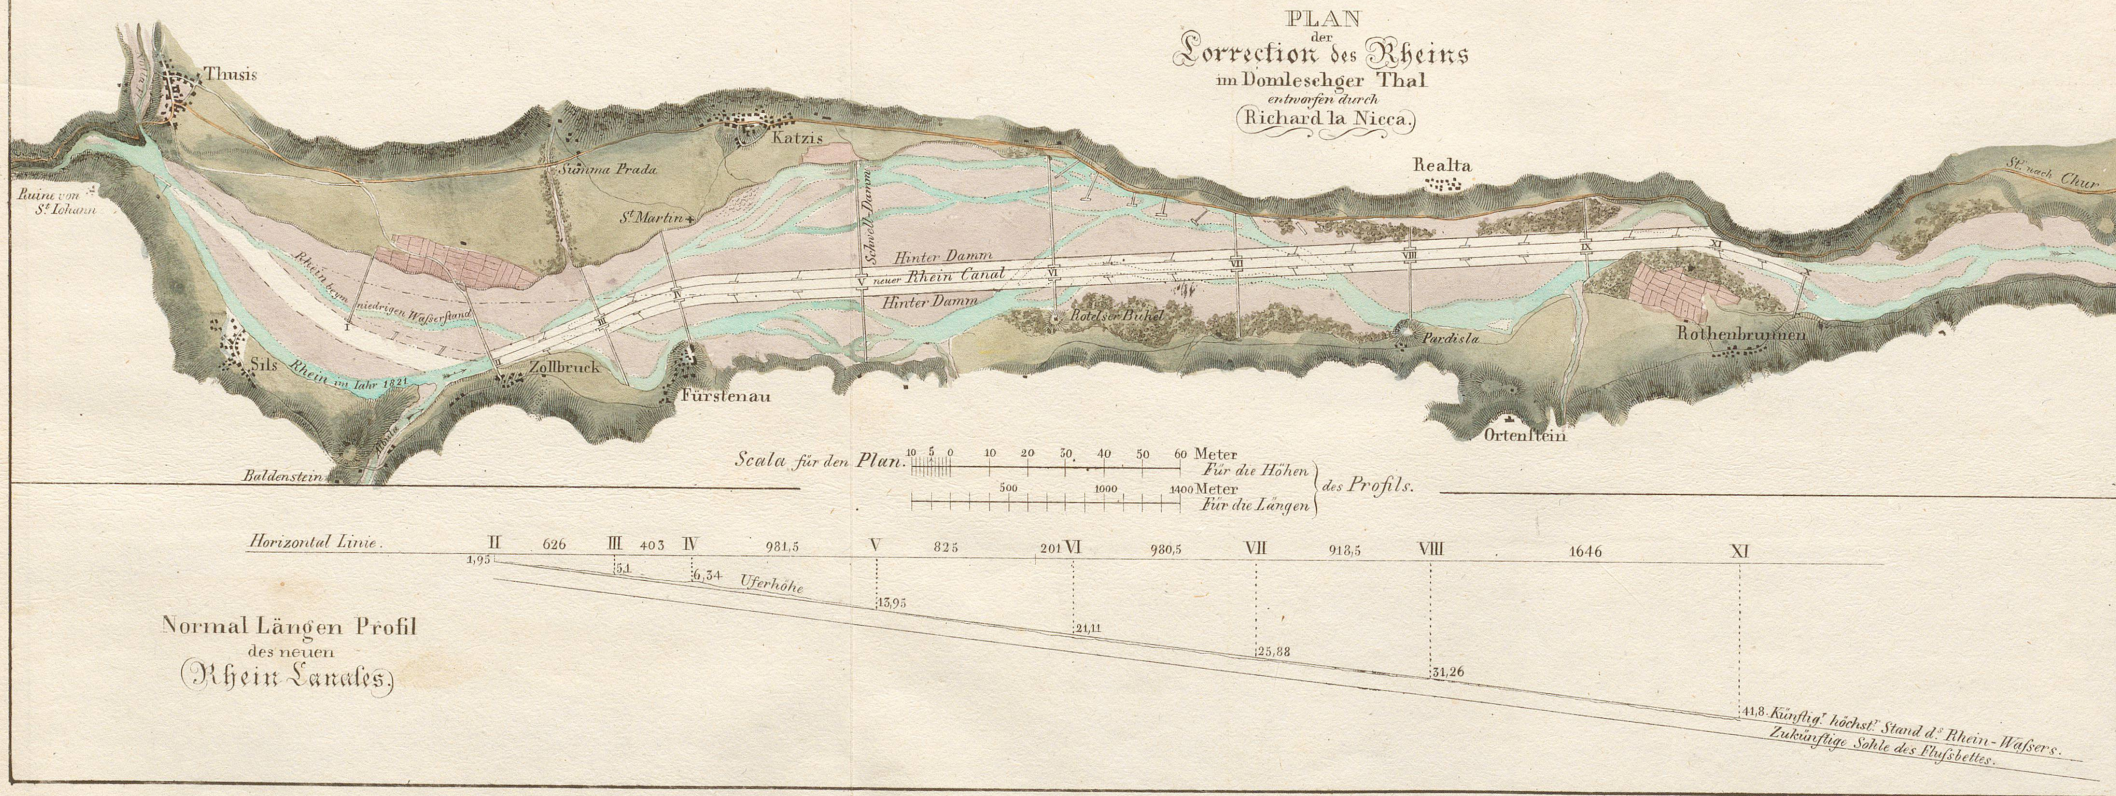 PLAN
der
Correction des Rheins
im Domleschger Thal
entworfen durch
Richard la Nicca.
Thusis
Nolla
Katzis
Summa Prada
Realta
Str. nach Chur
Ruine von
St. Iohann
St. Martin
Schwell-Damm
Hinter Damm
XI
IX
VIII
VII
X
VI
V
neuer Rhein Canal
Hinter Damm
IV
III
Rhein beym niedrigen Waſserstand
I
II
Rotelser Bühel
Pardisla
Rothenbrunnen
Sils
Rhein im Iahr 1821
Zollbruck
Fürstenau
Albula
Ortenſtein
Baldenstein
Scala für den Plan.
10 5 0 10 20 30 40 50 60 Meter
Für die Höhen
500 1000 1400 Meter
Für die Längen
des Profils.
Horizontal Linie.
II 626 III 403 IV 981,5 V 825 201 VI 980,5 VII 918,5 VIII 1646 XI
1,95
5,1
6,34
Uferhöhe
13,95
21,11
25,88
31,26
41,8
Künftigr. höchstr. Stand ds. Rhein-Waſsers.
Zukünftige Sohle des Fluſsbettes.
Normal Längen Profil
des neuen
Rhein Canales.